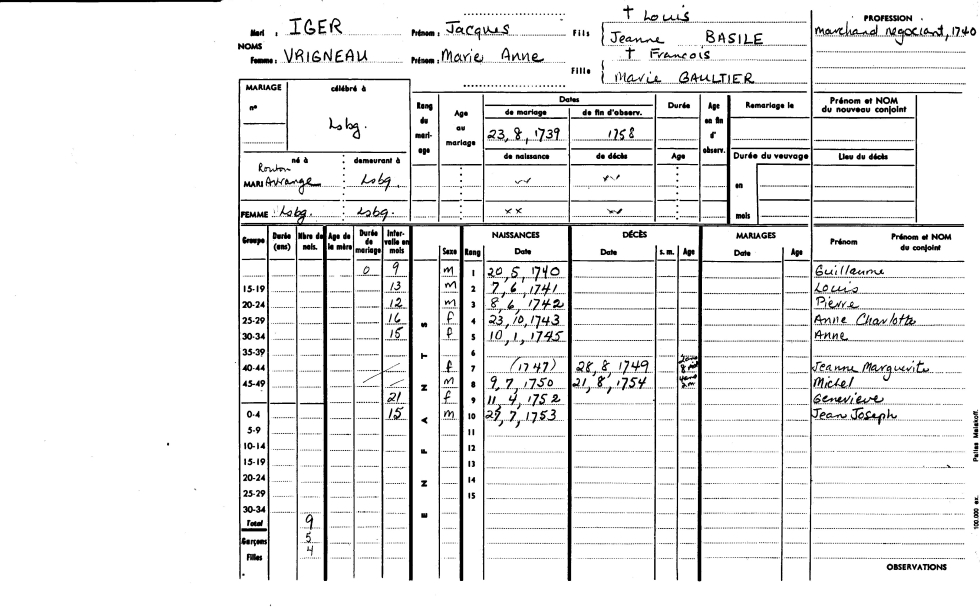 Mari : IGER Prénom : Jacques Fils { † Louis
Jeanne BASILE
PROFESSION
marchand négociant, 1740
NOMS
Femme : VRIGNEAU Prénom : Marie Anne Fille { † Francois
Marie GAULTIER
MARIAGE célébré à
n°
Lsbg.
Rang du mari- age
Age au mariage
Dates
de mariage de fin d'observ.
23, 8, 1739 1758
de naissance de décès
Durée
Age
Age en fin d' observ.
Remariage le
Durée du veuvage
en
mois
Prénom et NOM
du nouveau conjoint
Lieu du décès
né à demeurant à
MARI Avrange Lsbg.
FEMME : Lsbg. : Lsbg. xx
Groupe Durée (ans) Nbre de nais. Age de la mère Durée de mariage Inter- valle en mois
E N F A N T S
Sexe Rang
NAISSANCES DÉCÈS MARIAGES
Date Date s. m. Age Date Age Prénom Prénom et NOM du conjoint
0 9 m 1 20, 5, 1740 Guillaume
15-19 13 m 2 7, 6, 1741 Louis
20-24 12 m 3 8, 6, 1742 Pierre
25-29 16 f 4 23, 10, 1743 Anne Charlotte
30-34 15 f 5 10, 1, 1745 Anne
35-39 6
40-44 f 7 (1747) 28, 8, 1749 Jeanne Marguerite
45-49 m 8 9, 7, 1750 21, 8, 1754 Michel
21 f 9 11, 4, 1752 Genevieve
0-4 15 m 10 7, 1753 Jean Joseph
5-9 11
10-14 12
15-19 13
20-24 14
25-29 15
30-34
Total 9
Garçons 5
Filles 4
OBSERVATIONS
100.000 ex.